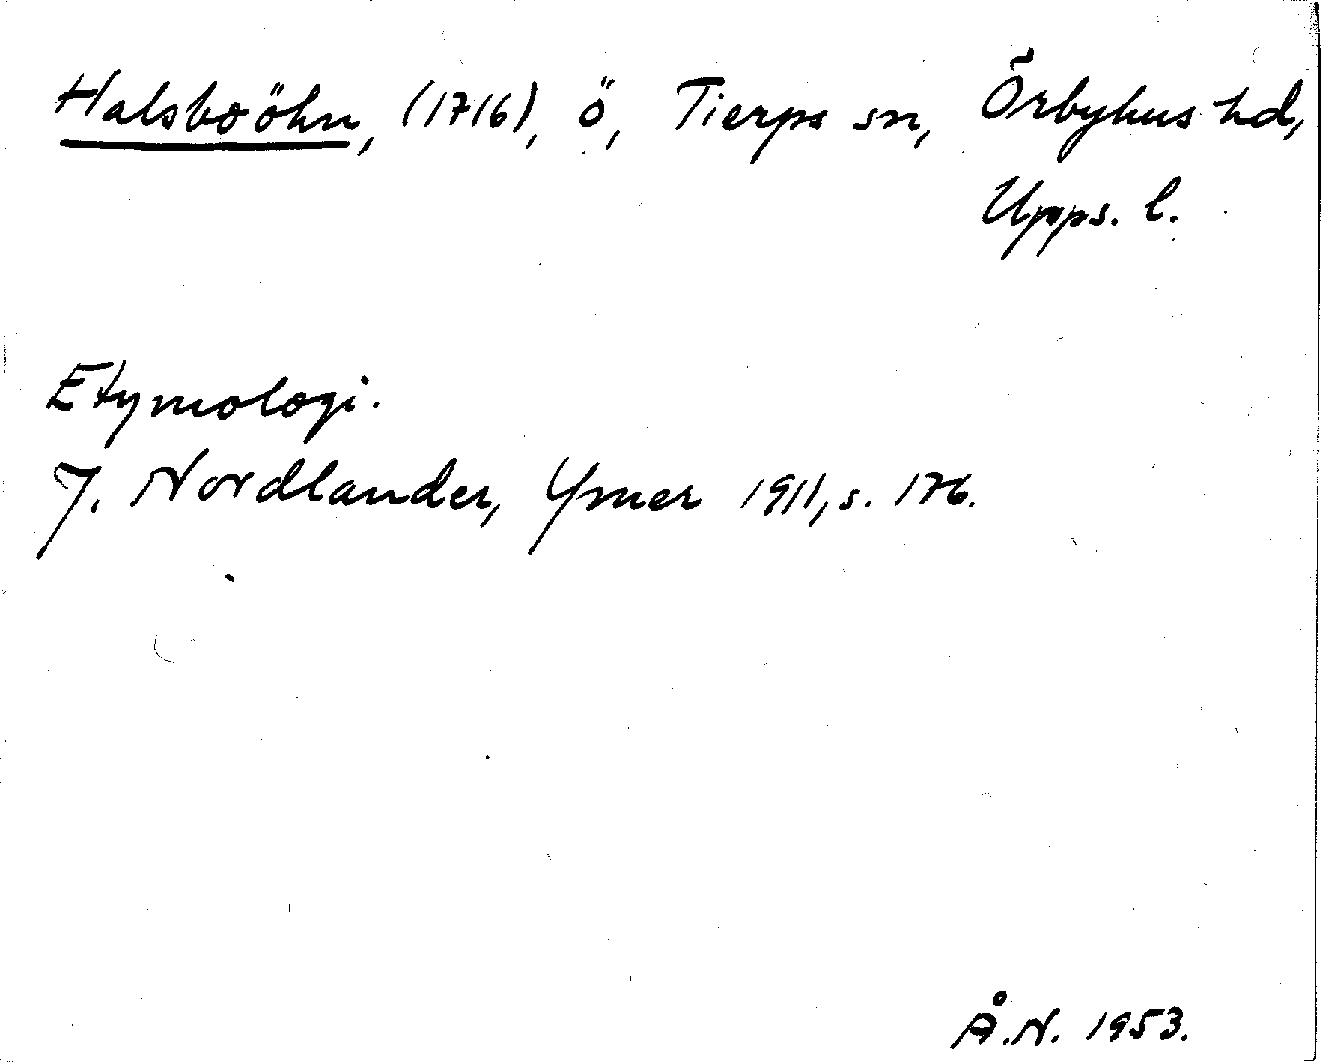 Halsboöhn, (1716), ö, Tierps sn, Örbyhus hd,
Upps. l.
Etymologi.
J. Nordlander, Ymer 1911, s. 176.
Å.N. 1953.